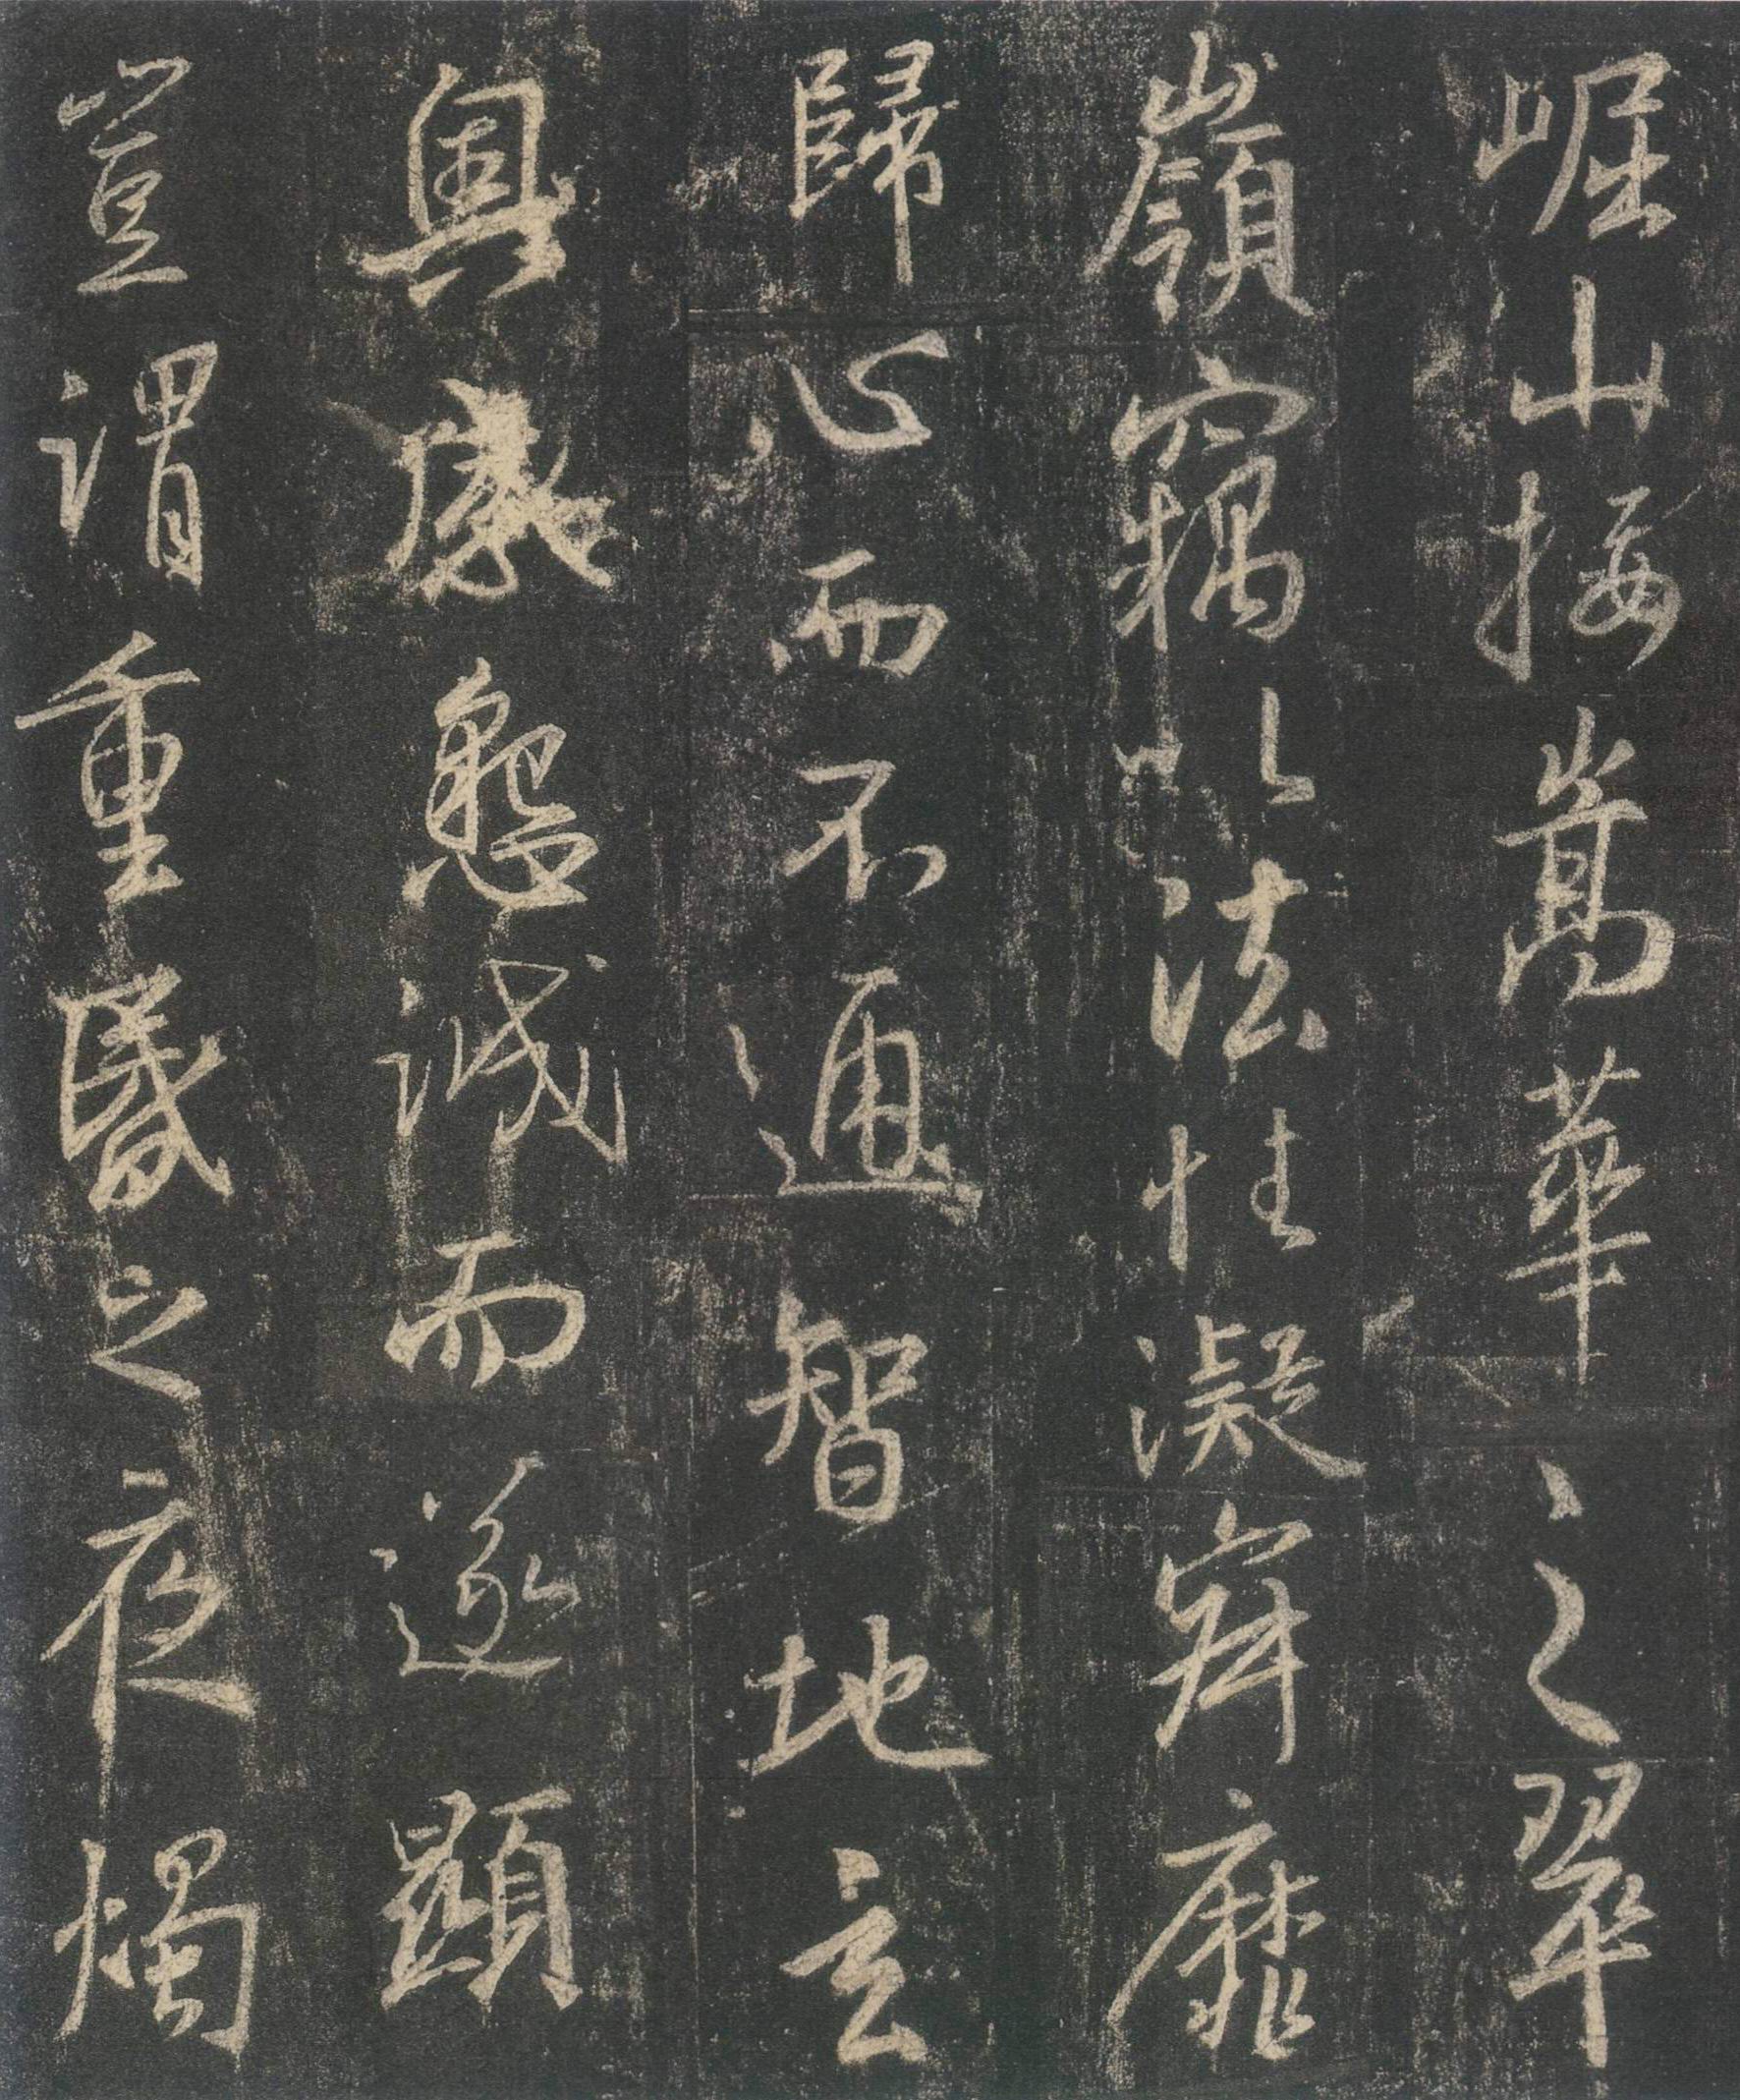 崛山接嵩華之翠
嶺竊以法性凝寂靡
歸心而不通智地玄
奧感懇誠而遂顯
豈謂重昬之夜燭